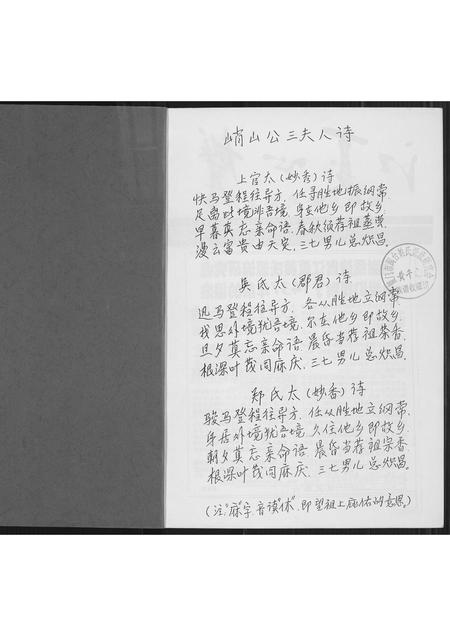 峭山公三夫人诗
上官太(妙秀)诗
快马登程往异方，任寻胜地振纲常，
足离此境非吾境，身在他乡即故乡，
早暮莫忘亲命语，春秋须荐祖蒸尝，
漫云富贵由天定，三七男儿总炽昌。
吴氏太(郡君)诗
迅马登程往异方，各从胜地立纲常，
我思外境犹吾境，尔在他乡即故乡，
旦夕莫忘亲命语，晨昏当荐祖茶香，
根深叶茂同庥庆，三七男儿总炽昌。
郑氏太(妙香)诗
骏马登程往异方，任从胜地立纲常，
身居外境犹吾境，久住他乡即故乡，
朝夕莫忘亲命语，晨昏当荐祖宗香，
根深叶茂同庥庆，三七男儿总炽昌。
(注：“庥”字，音读“休”，即望祖上庇佑的意思。)